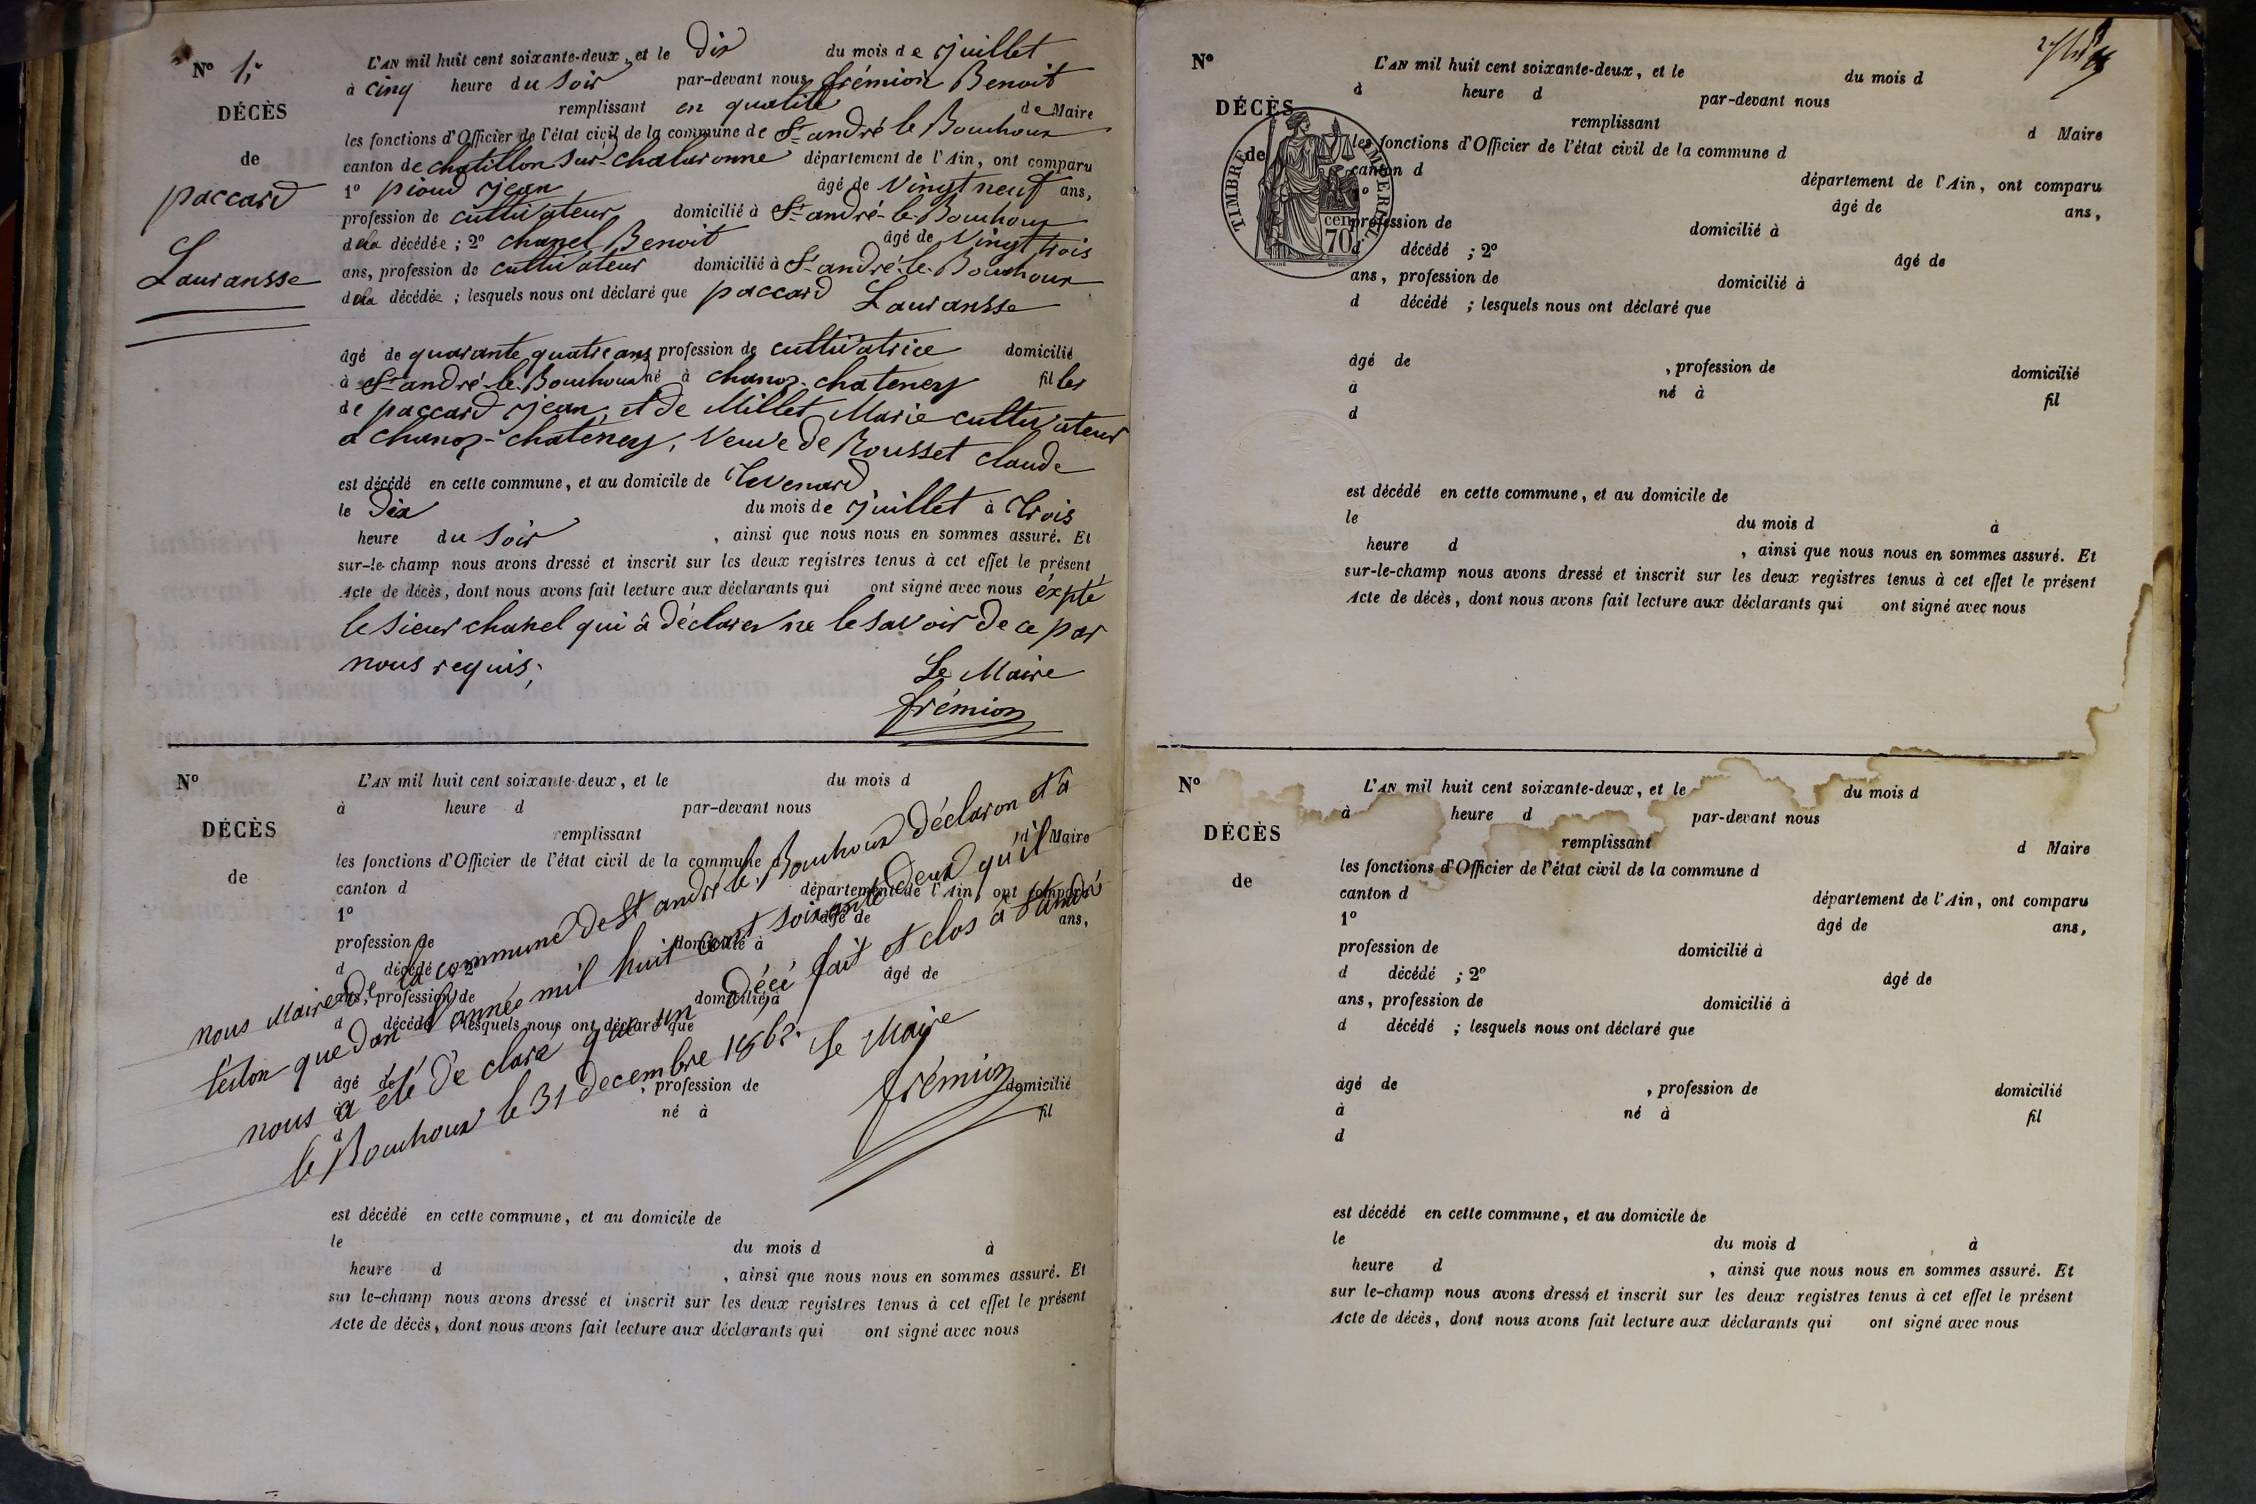 N° 1,
DÉCÈS
de
paccard
Lauransse
L'AN mil huit cent soixante-deux, et le dix du mois de juillet
à cinq heure du soir par-devant nous frémion Benoit
remplissant en qualité de Maire
les fonctions d'Officier de l'état civil de la commune de St andré le Bouchoux
canton de chatillon sur chalaronne département de l'Ain, ont comparu
1° pioud jean âgé de vingt neuf ans,
profession de cultivateur domicilié à St andré-le-Bouchoux
de la décédée ; 2° chanel Benoit âgé de vingt trois
ans, profession de cultivateur domicilié à St andré-le-Bouchoux
de la décédée ; lesquels nous ont déclaré que paccard Lauransse
âgé de quarante quatre ans profession de cultivatrice domicilié
à St andré-le-Bouchoux né à chanoz-chateney fil les
de paccard jean, et de Millet Marie cultivateur
a chanoz-chateney, veuve de Rousset claude
est décédé en cette commune, et au domicile de Tevenard
le dix du mois de juillet à trois
heure du soir , ainsi que nous nous en sommes assuré. Et
sur-le-champ nous avons dressé et inscrit sur les deux registres tenus à cet effet le présent
Acte de décès, dont nous avons fait lecture aux déclarants qui ont signé avec nous éxpté
le sieur chanel qui â déclarer ne le savoir de ce par
nous requis,
Le Maire
frémion
N°
DÉCÈS
de
L'AN mil huit cent soixante-deux, et le du mois d
à heure d par-devant nous
remplissant d Maire
les fonctions d'Officier de l'état civil de la commune d
canton d département de l'Ain, ont comparu
1° âgé de ans,
profession de domicilié à
d décédé ; 2° âgé de
ans, profession de domicilié à
d décédé ; lesquels nous ont déclaré que
âgé de , profession de domicilié
à né à fil
d
nous Maire de la commune de St andré le Bouchoux déclaron et a
teston que dan l'année mil huit cent soixante deux qu'il
nous a été déclaré que un décé fait et clos a St andré
le Bouchoux le 31 decembre 1862. Le Maire
frémion
est décédé en cette commune, et au domicile de
le du mois d à
heure d , ainsi que nous nous en sommes assuré. Et
sur le-champ nous avons dressé et inscrit sur les deux registres tenus à cet effet le présent
Acte de décès, dont nous avons fait lecture aux déclarants qui ont signé avec nous
N°
DÉCÈS
de
TIMBRE IMPERIAL
70 cen
L'AN mil huit cent soixante-deux, et le du mois d
à heure d par-devant nous
remplissant d Maire
les fonctions d'Officier de l'état civil de la commune d
canton d département de l'Ain, ont comparu
1° âgé de ans,
profession de domicilié à
d décédé ; 2° âgé de
ans, profession de domicilié à
d décédé ; lesquels nous ont déclaré que
âgé de , profession de domicilié
à né à fil
d
est décédé en cette commune, et au domicile de
le du mois d à
heure d , ainsi que nous nous en sommes assuré. Et
sur-le-champ nous avons dressé et inscrit sur les deux registres tenus à cet effet le présent
Acte de décès, dont nous avons fait lecture aux déclarants qui ont signé avec nous
N°
DÉCÈS
de
L'AN mil huit cent soixante-deux, et le du mois d
à heure d par-devant nous
remplissant d Maire
les fonctions d'Officier de l'état civil de la commune d
canton d département de l'Ain, ont comparu
1° âgé de ans,
profession de domicilié à
d décédé ; 2° âgé de
ans, profession de domicilié à
d décédé ; lesquels nous ont déclaré que
âgé de , profession de domicilié
à né à fil
d
est décédé en cette commune, et au domicile de
le du mois d à
heure d , ainsi que nous nous en sommes assuré. Et
sur le-champ nous avons dressé et inscrit sur les deux registres tenus à cet effet le présent
Acte de décès, dont nous avons fait lecture aux déclarants qui ont signé avec nous